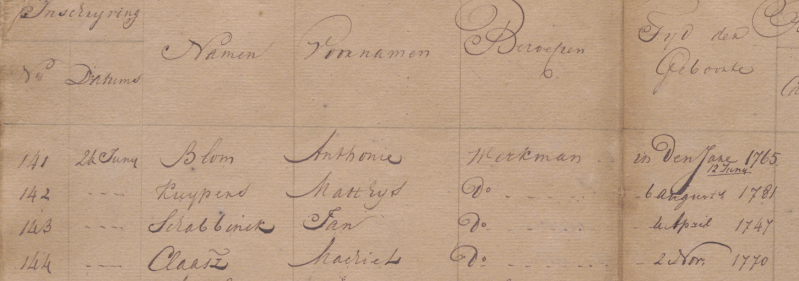 Inschryving
Namen Voornamen Beroepen Tyd den
No Datums Geboorte
141 26 Juny Blom Anthonie Werkman in Den Jare 1765
12 Juny
142 - - - - Kuypers Matthys Do - - - - - 6 augusty 1781
143 - - - - Jan Do - - - - - April 1747
144 - - - - Claasz Do - - - - - 2 Nov. 1770